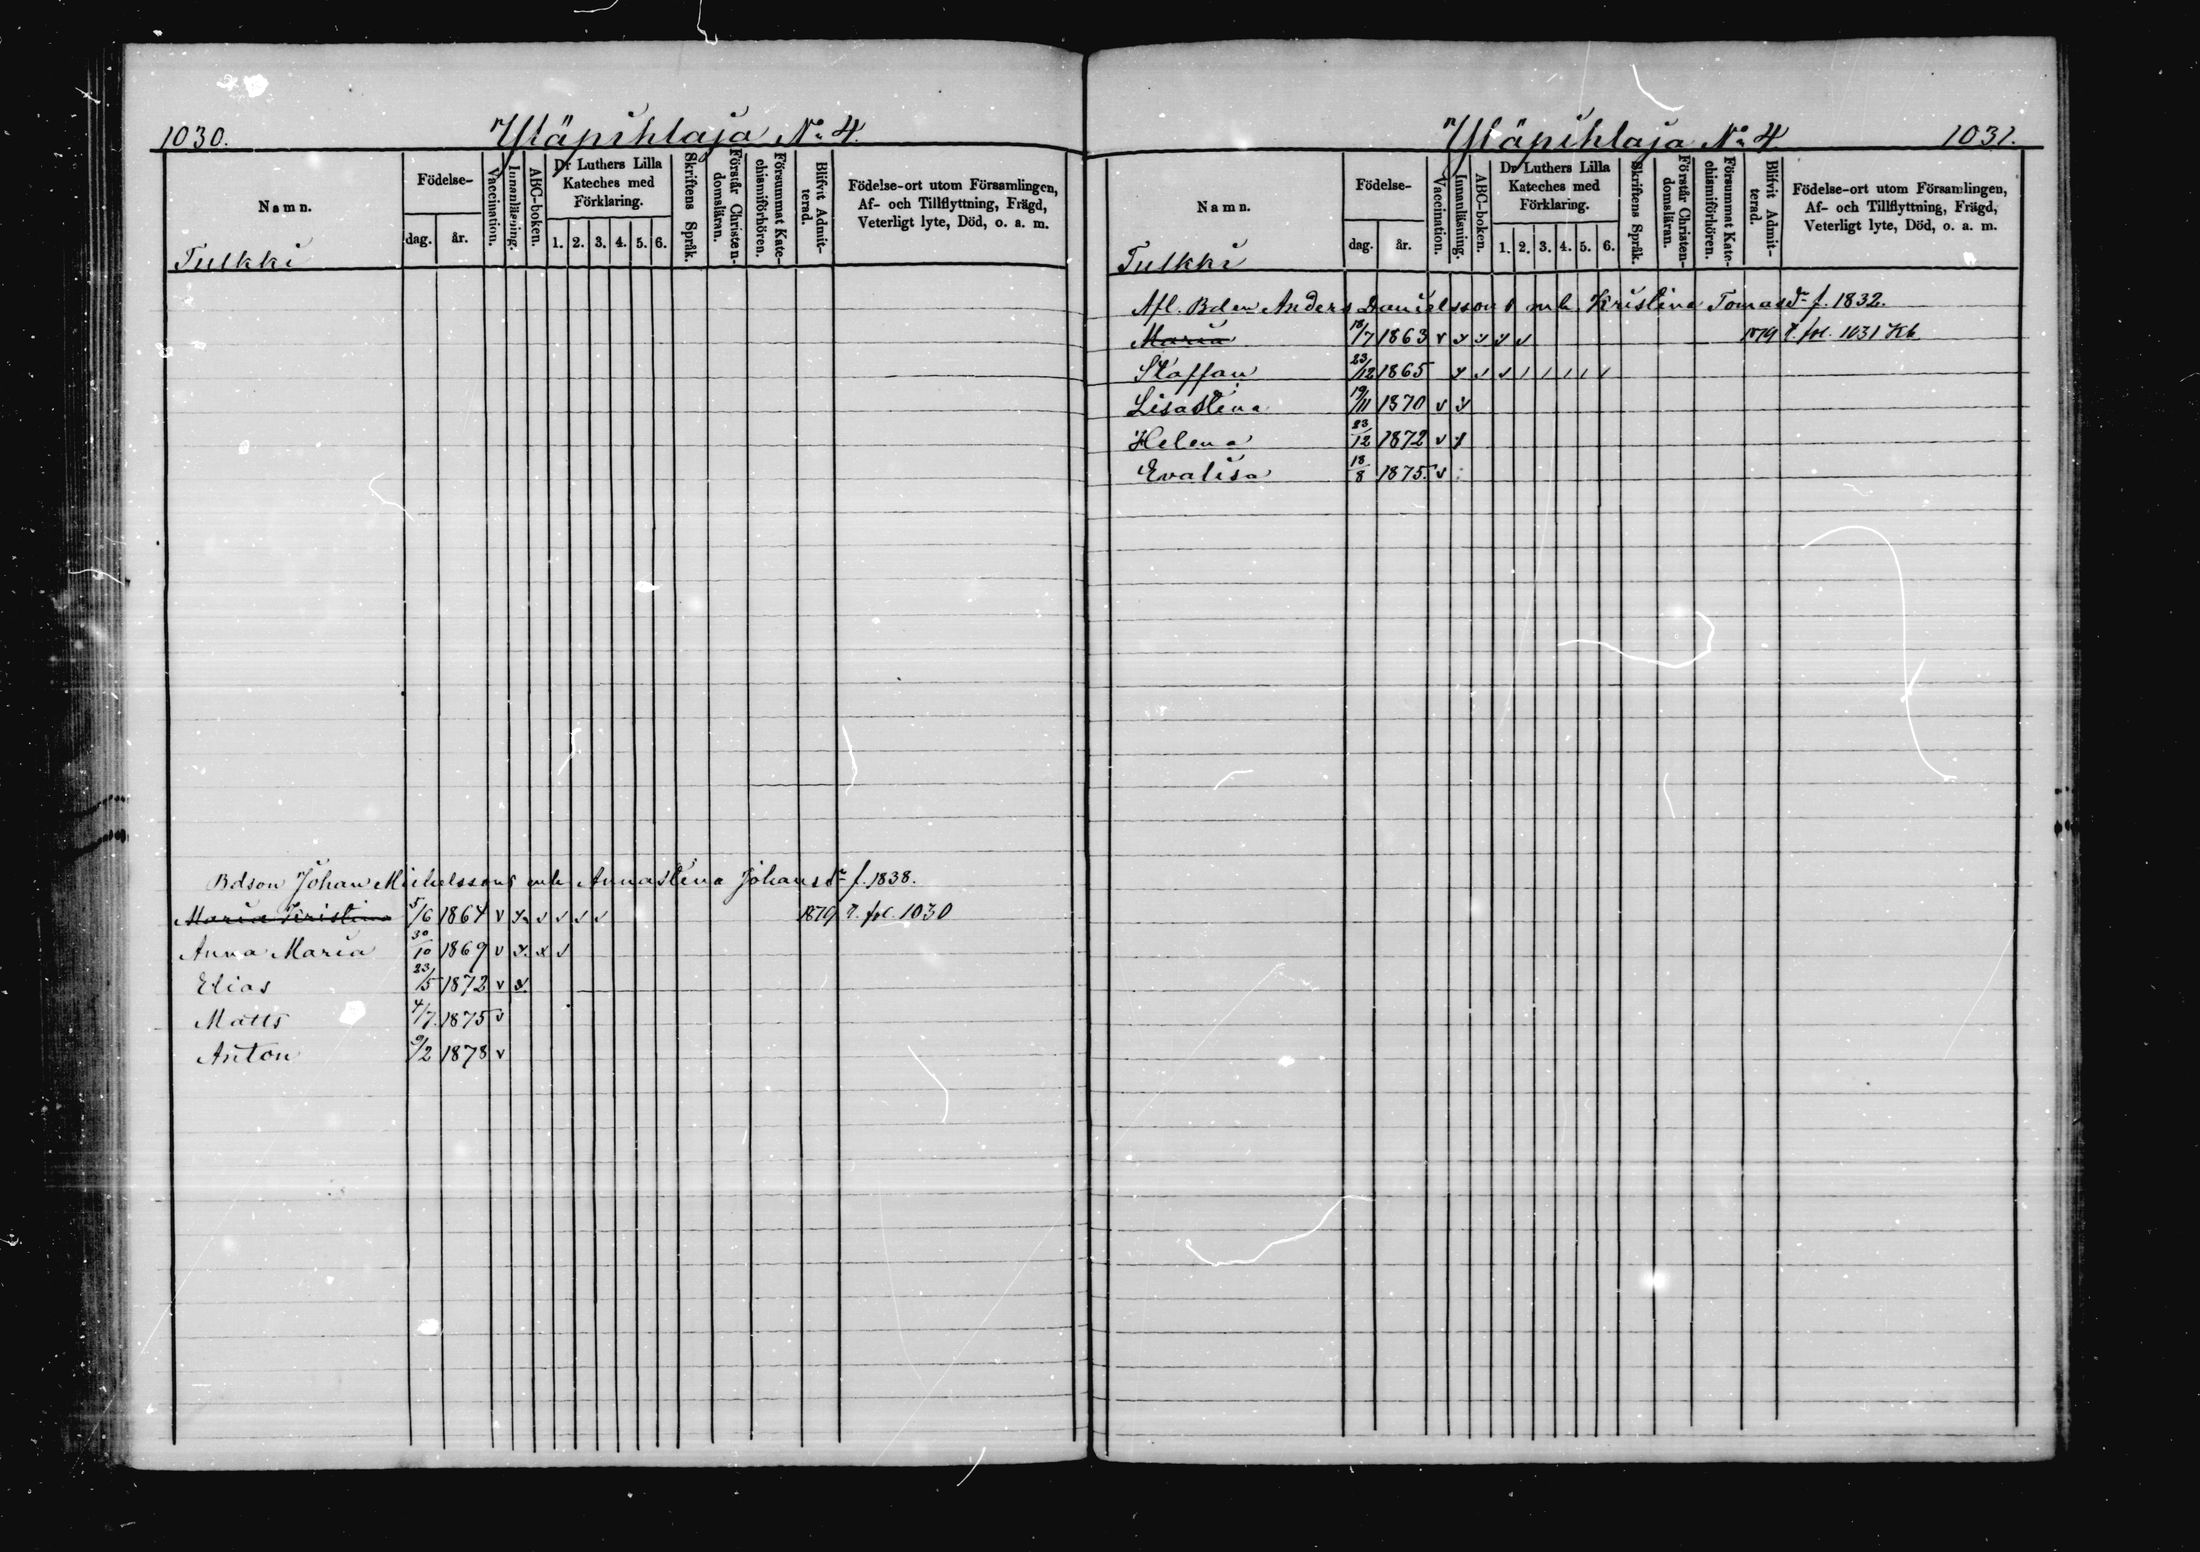 1030.
Yläpihlaja No 4.
Namn.
Födelse-
dag.
år.
Vaccination.
Innanläsning.
ABC-boken.
Dr Luthers Lilla
Kateches med
Förklaring.
1. 2. 3. 4. 5. 6.
Skriftens Språk.
Förstår Christen-
domsläran.
Försummat Kate-
chismiförhören.
Blifvit Admit-
terad.
Födelse-ort utom Församlingen,
Af- och Tillflyttning, Frägd,
Veterligt lyte, Död, o. a. m.
Tulkki
Bdson Johan Michelssons enk Annastina Johansdr f. 1838.
Maria Kristina 5/6 1864 v 1879 t. fol. 1030
Anna Maria 30/10 1869 v
Elias 23/5 1872 v
Matts 4/7 1875 v
Anton 9/2 1878 v
Yläpihlaja No 4
1031.
Namn.
Födelse-
dag.
år.
Vaccination.
Innanläsning.
ABC-boken.
Dr Luthers Lilla
Kateches med
Förklaring.
1. 2. 3. 4. 5. 6.
Skriftens Språk.
Förstår Christen-
domsläran.
Försummat Kate-
chismiförhören.
Blifvit Admit-
terad.
Födelse-ort utom Församlingen,
Af- och Tillflyttning, Frägd,
Veterligt lyte, Död, o. a. m.
Tulkki
Afl. Bden Anders Danielssons enk. Kristina Tomasdr f. 1832.
Maria 18/7 1863 v 1879 t. fol. 1031 Kb
Staffan 23/12 1865
Lisastina 19/11 1870 v
Helena 23/12 1872 v
Evalisa 18/8 1875 v